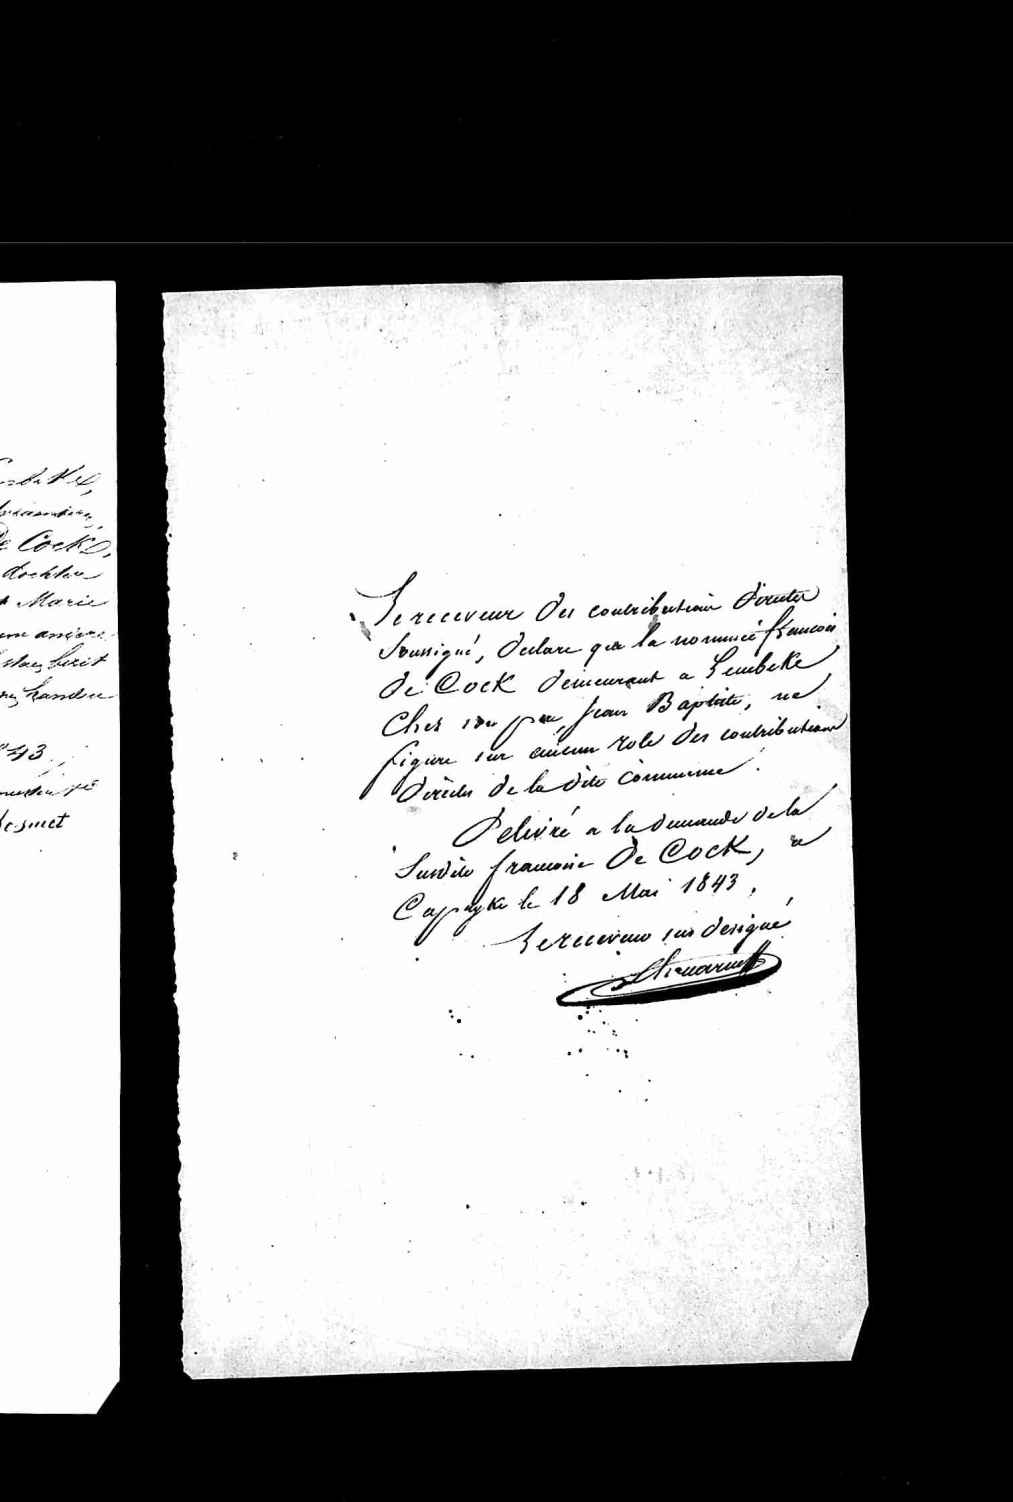 De Cock,
dochter
Marie
43
Desmet
Le receveur des contributions directes
soussigné, declare que la nommée francoise
de Cock demeurant a Lembeke
Chez son père, Jean Baptiste, ne
figure sur aucun role des contributions
directes de la dite commune.
Delivré a la demande de la
Susdite francoise De Cock, a
Capryke le 18 Mai 1843,
Le receveur sus designé